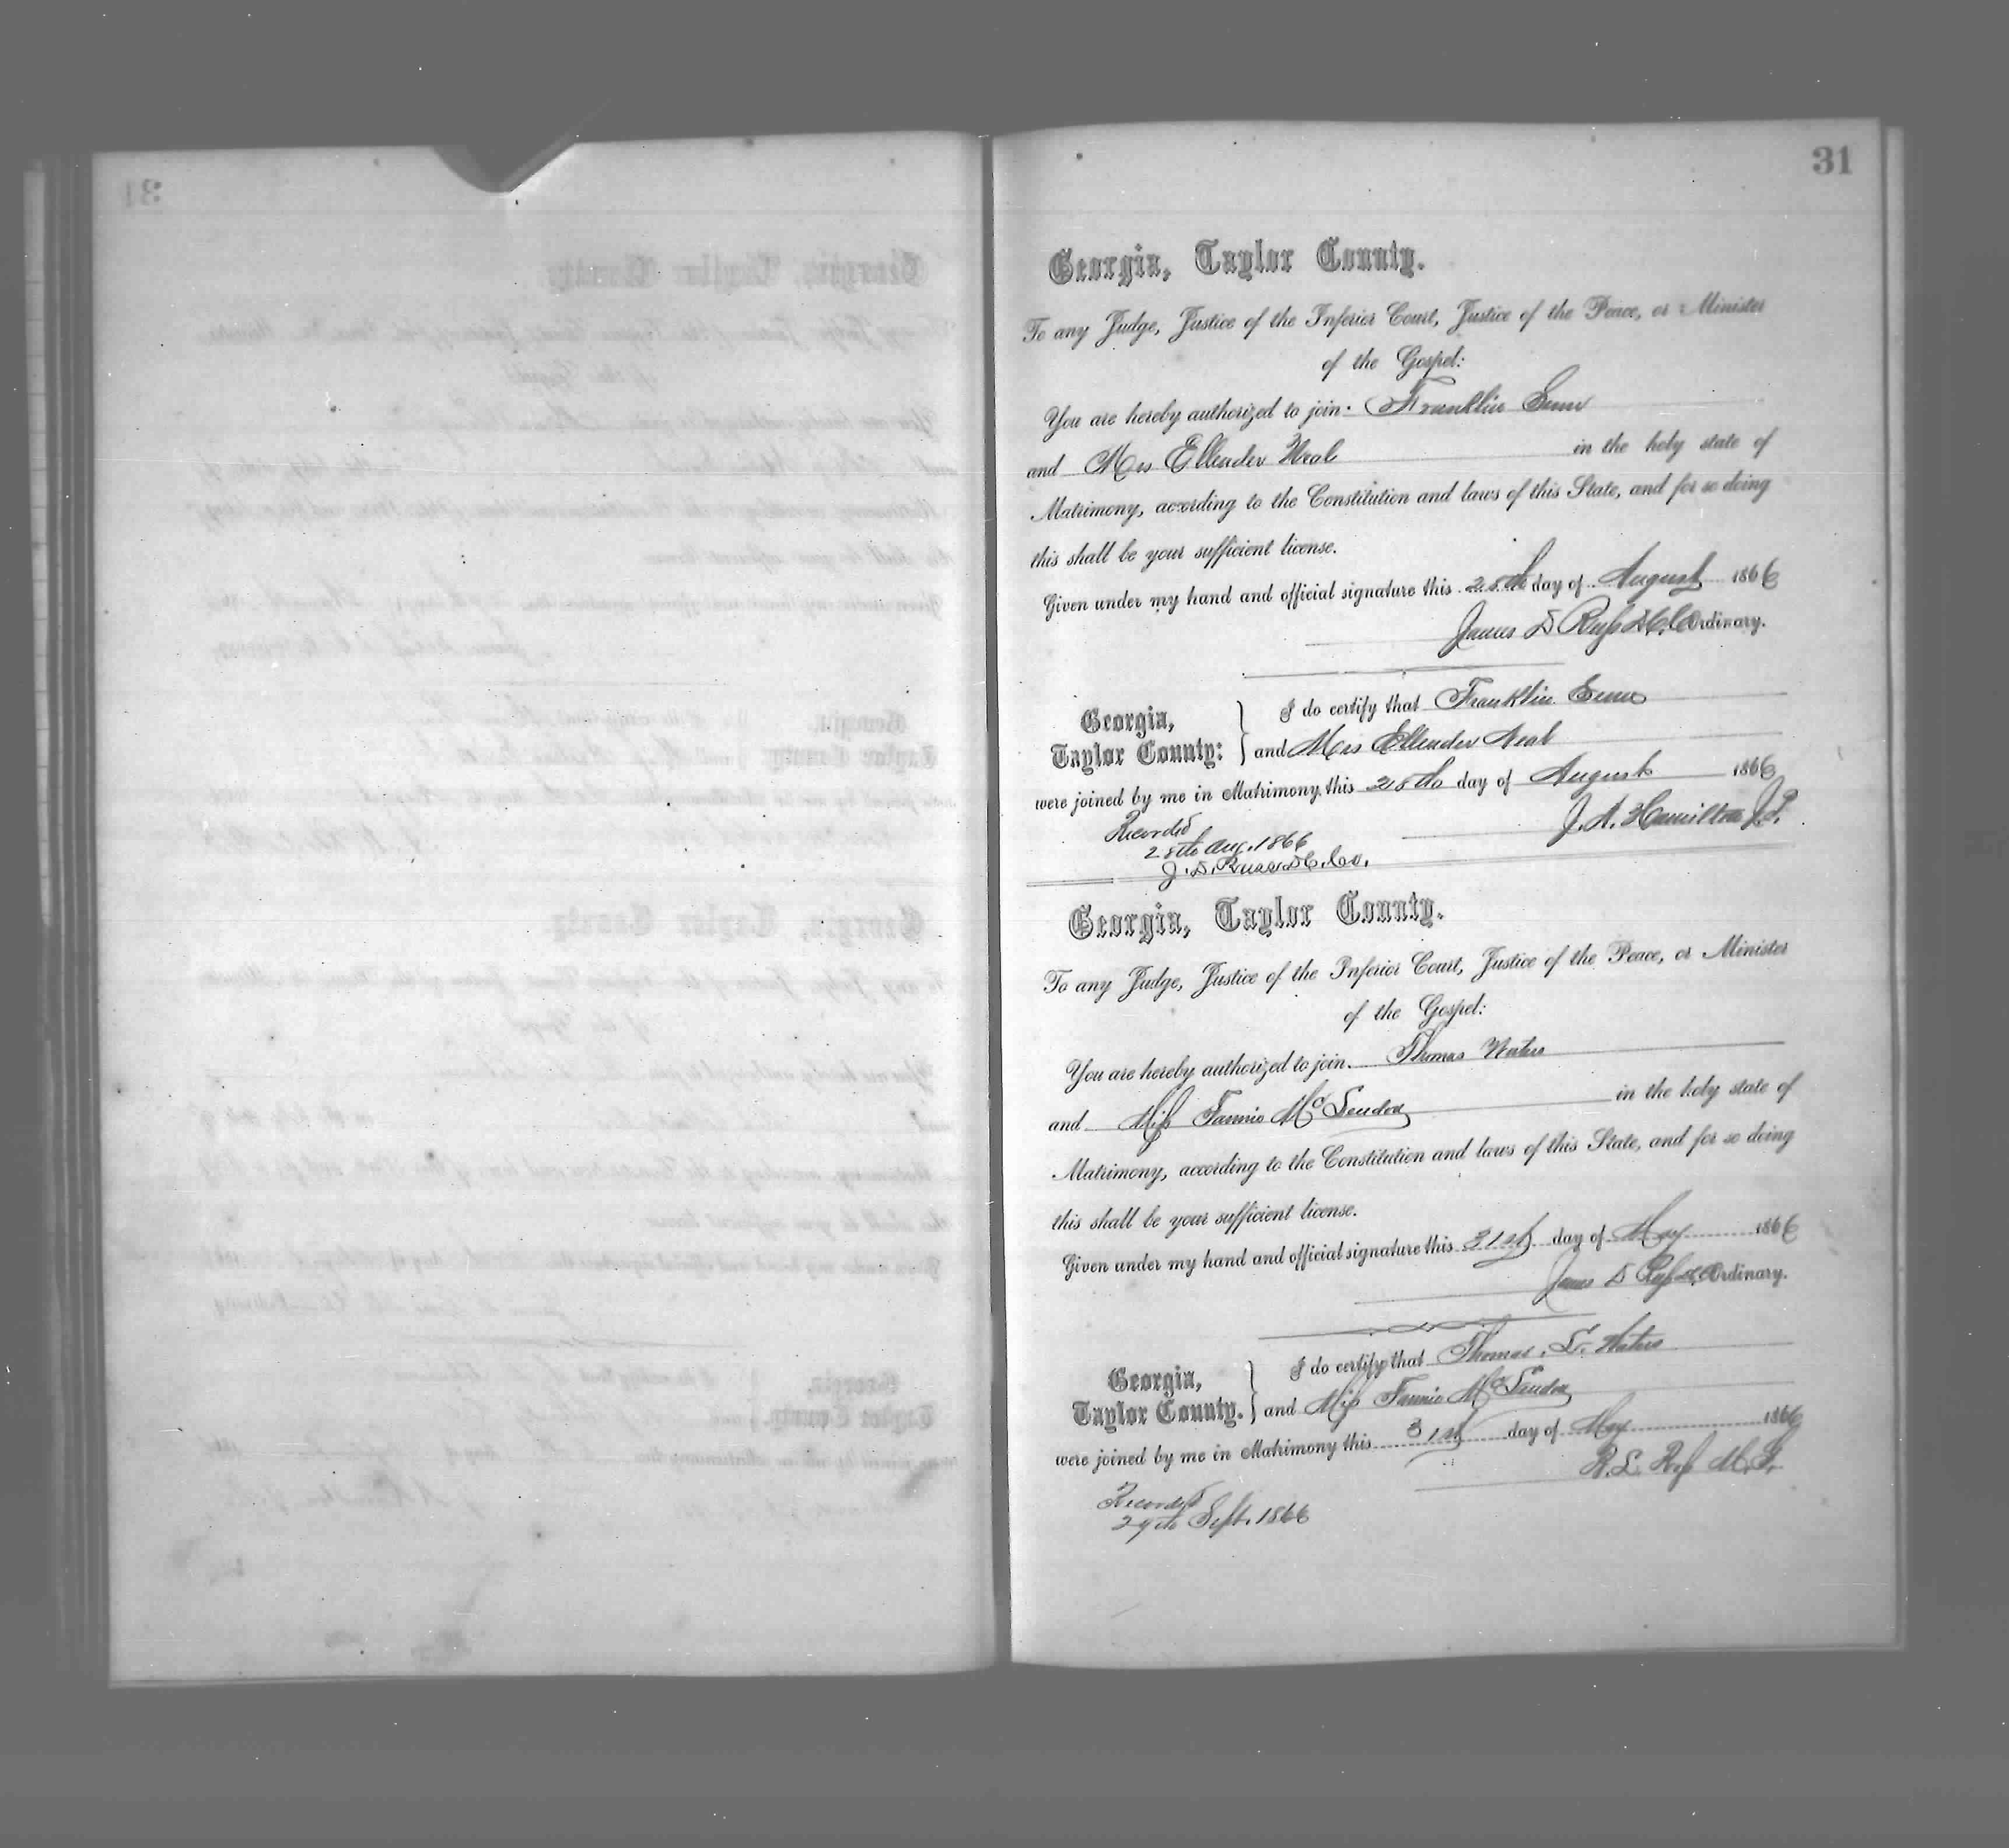 31
Georgia, Taylor County.
To any Judge, Justice of the Inferior Court, Justice of the Peace, or Minister
of the Gospel:
You are hereby authorized to join Franklin
and Mrs Ellender Neal in the holy state of
Matrimony, according to the Constitution and laws of this State, and for so doing
this shall be your sufficient license.
Given under my hand and official signature this 28th day of August 1866
James D Russ D.C.C. Ordinary.
Georgia,
Taylor County:
I do certify that Franklin
and Mrs Ellender Neal
were joined by me in Matrimony this 28th day of August 1866
J. A. Hamilton J.P.
Recorded
28th Aug. 1866
J. D. Russ D.C.C.O.
Georgia, Taylor County.
To any Judge, Justice of the Inferior Court, Justice of the Peace, or Minister
of the Gospel:
You are hereby authorized to join Thomas Waters
and Miss Fannie McLendon in the holy state of
Matrimony, according to the Constitution and laws of this State, and for so doing
this shall be your sufficient license.
Given under my hand and official signature this 31st day of May 1866
James D Russ Ordinary.
Georgia,
Taylor County.
I do certify that Thomas. Waters
and Miss Fannie McLendon
were joined by me in Matrimony this 31st day of May 1866
R. L. M.G.
Recorded
29th Sept. 1866